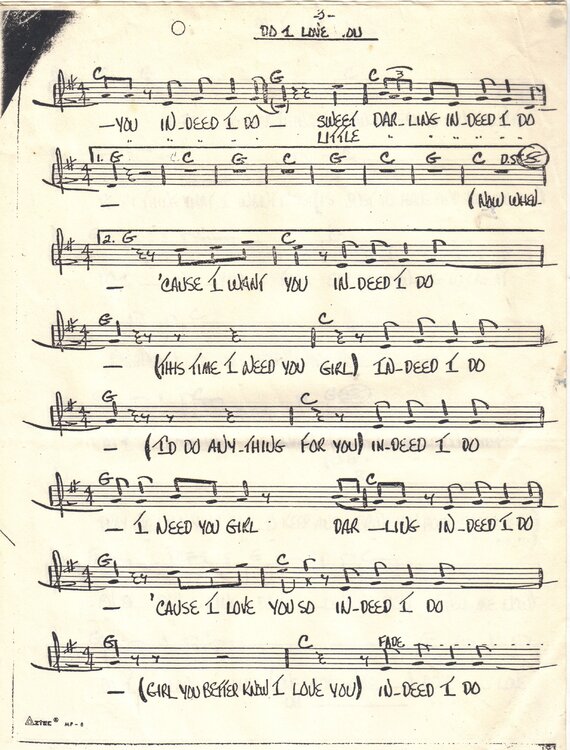 -3-
DO I LOVE OU
C G C 3
— YOU IN-DEED I DO — SWEET DAR-LING IN-DEED I DO
LITTLE " " " " " "
1. G C G C G C G C D.S.
(NOW WHEN
2. G C
— 'CAUSE I WANT YOU IN-DEED I DO
G C
— (THIS TIME I NEED YOU GIRL) IN-DEED I DO
G C
— (I'D DO ANY-THING FOR YOU) IN-DEED I DO
G C
— I NEED YOU GIRL DAR—LING IN-DEED I DO
G C
— 'CAUSE I LOVE YOU SO IN-DEED I DO
G C FADE
— (GIRL YOU BETTER KNOW I LOVE YOU) IN-DEED I DO
AZTEC® MP-8